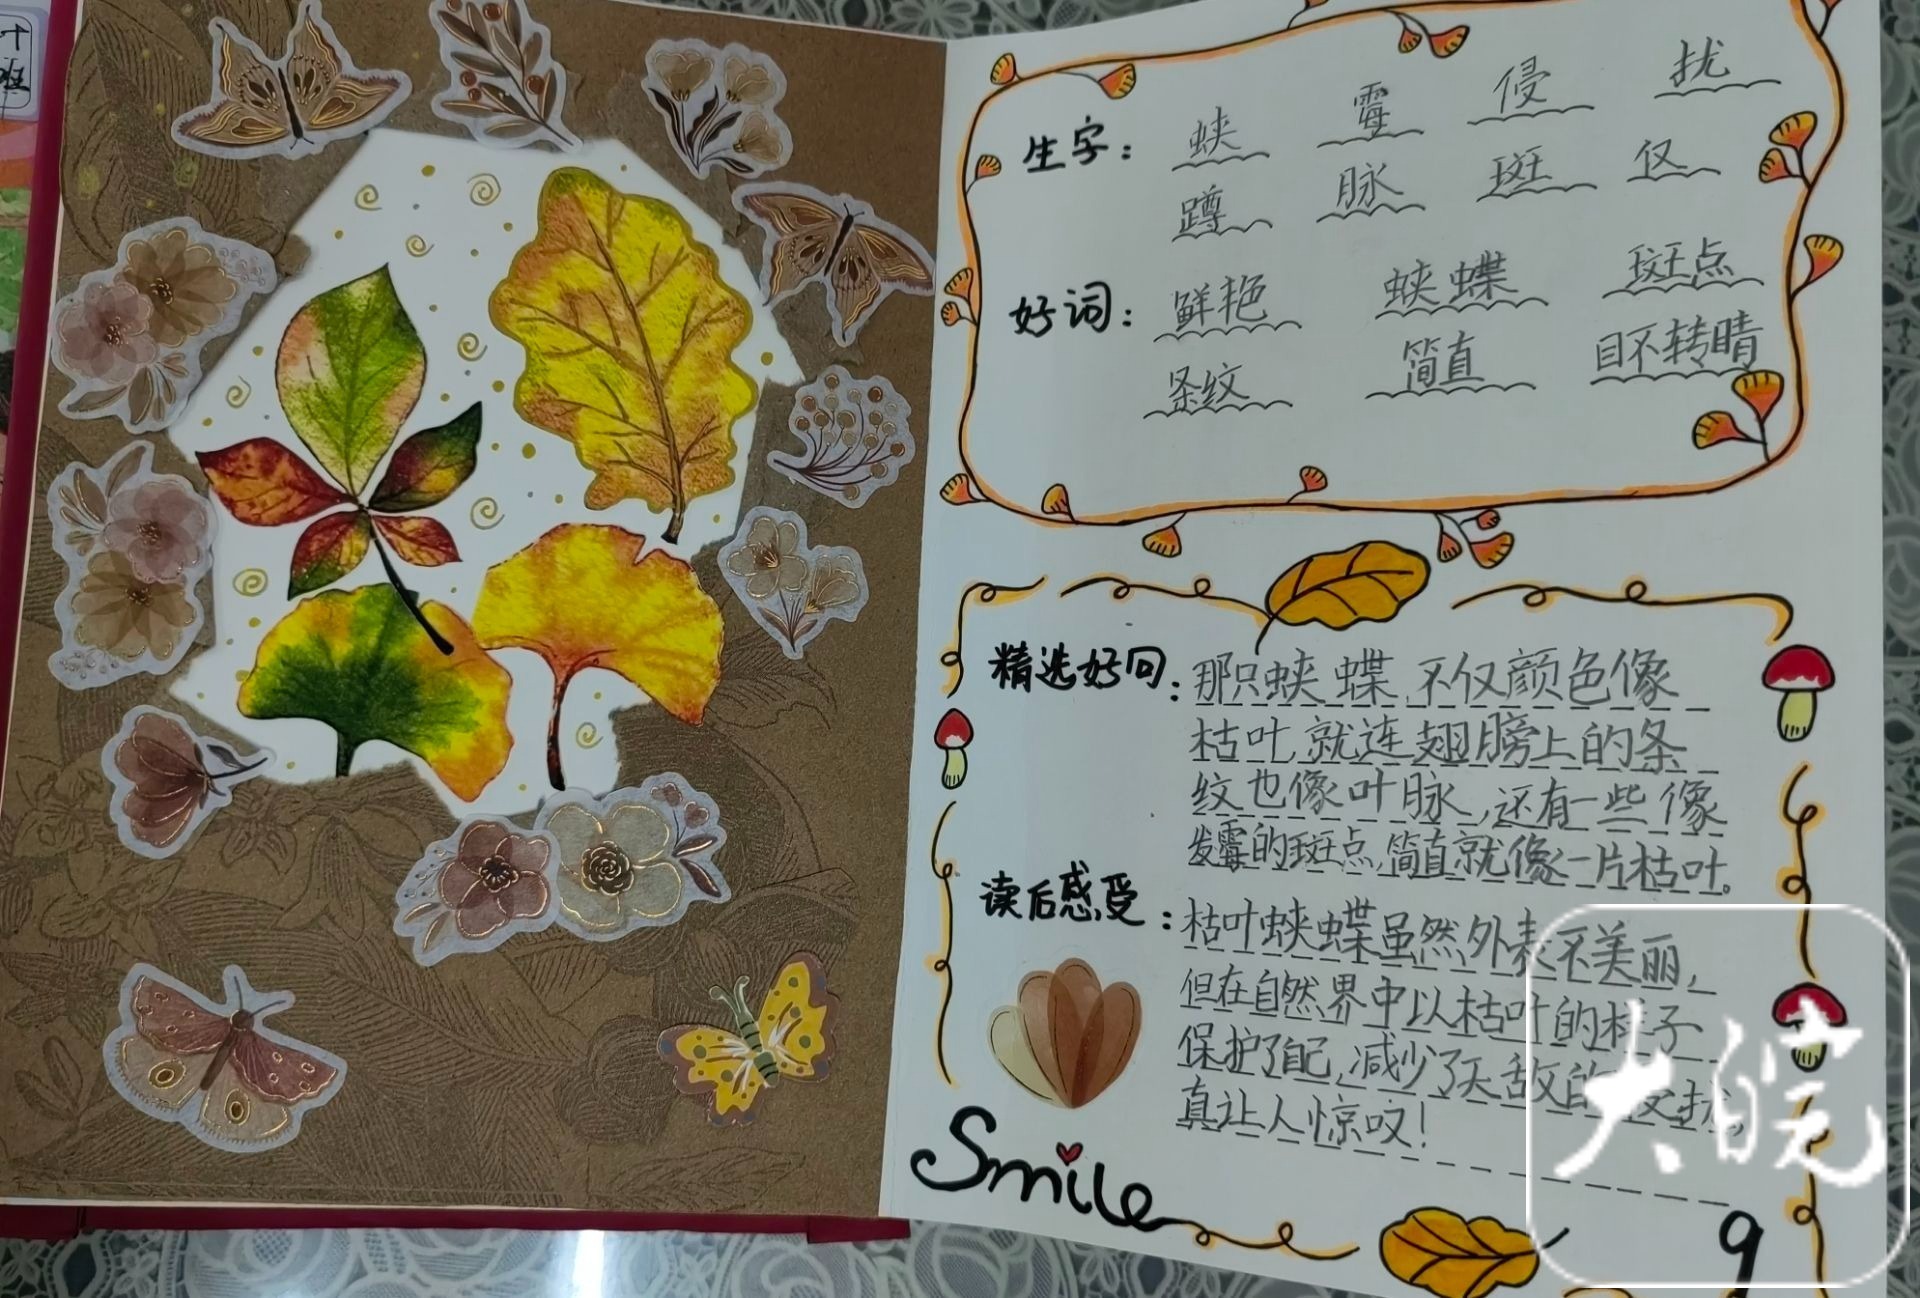 十
班
生字： 蛱 霉 侵 扰
蹲 脉 斑 仅
好词： 鲜艳 蛱蝶 斑点
条纹 简直 目不转睛
精选好句： 那只蛱蝶，不仅颜色像
枯叶，就连翅膀上的条
纹也像叶脉，还有一些像
发霉的斑点，简直就像一片枯叶。
读后感受： 枯叶蛱蝶虽然外表不美丽，
但在自然界中以枯叶的样子
保护了自己，减少了天敌的侵扰，
真让人惊叹！
Smile
9
大皖